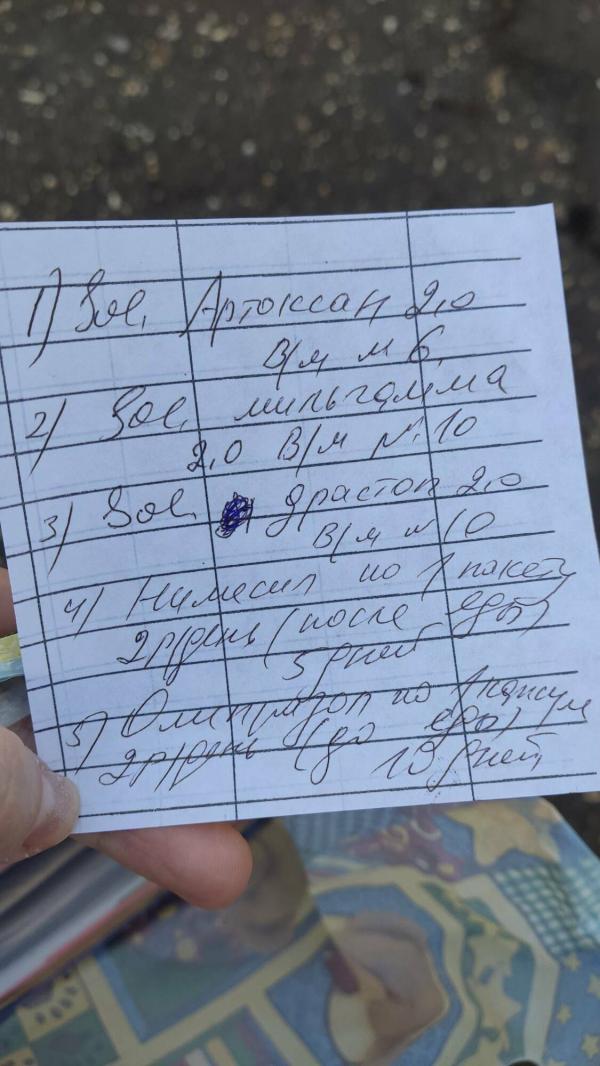 1) Sol. Артоксан 2,0
в/м N 6.
2) Sol. мильгамма
2,0 в/м N. 10
3) Sol. драстоп 2,0
в/м N 10
4) Нимесил по 1 пакету
2р/день (после еды)
5 дней
5) по 1 капсуле
2р/день (до еды)
10 дней